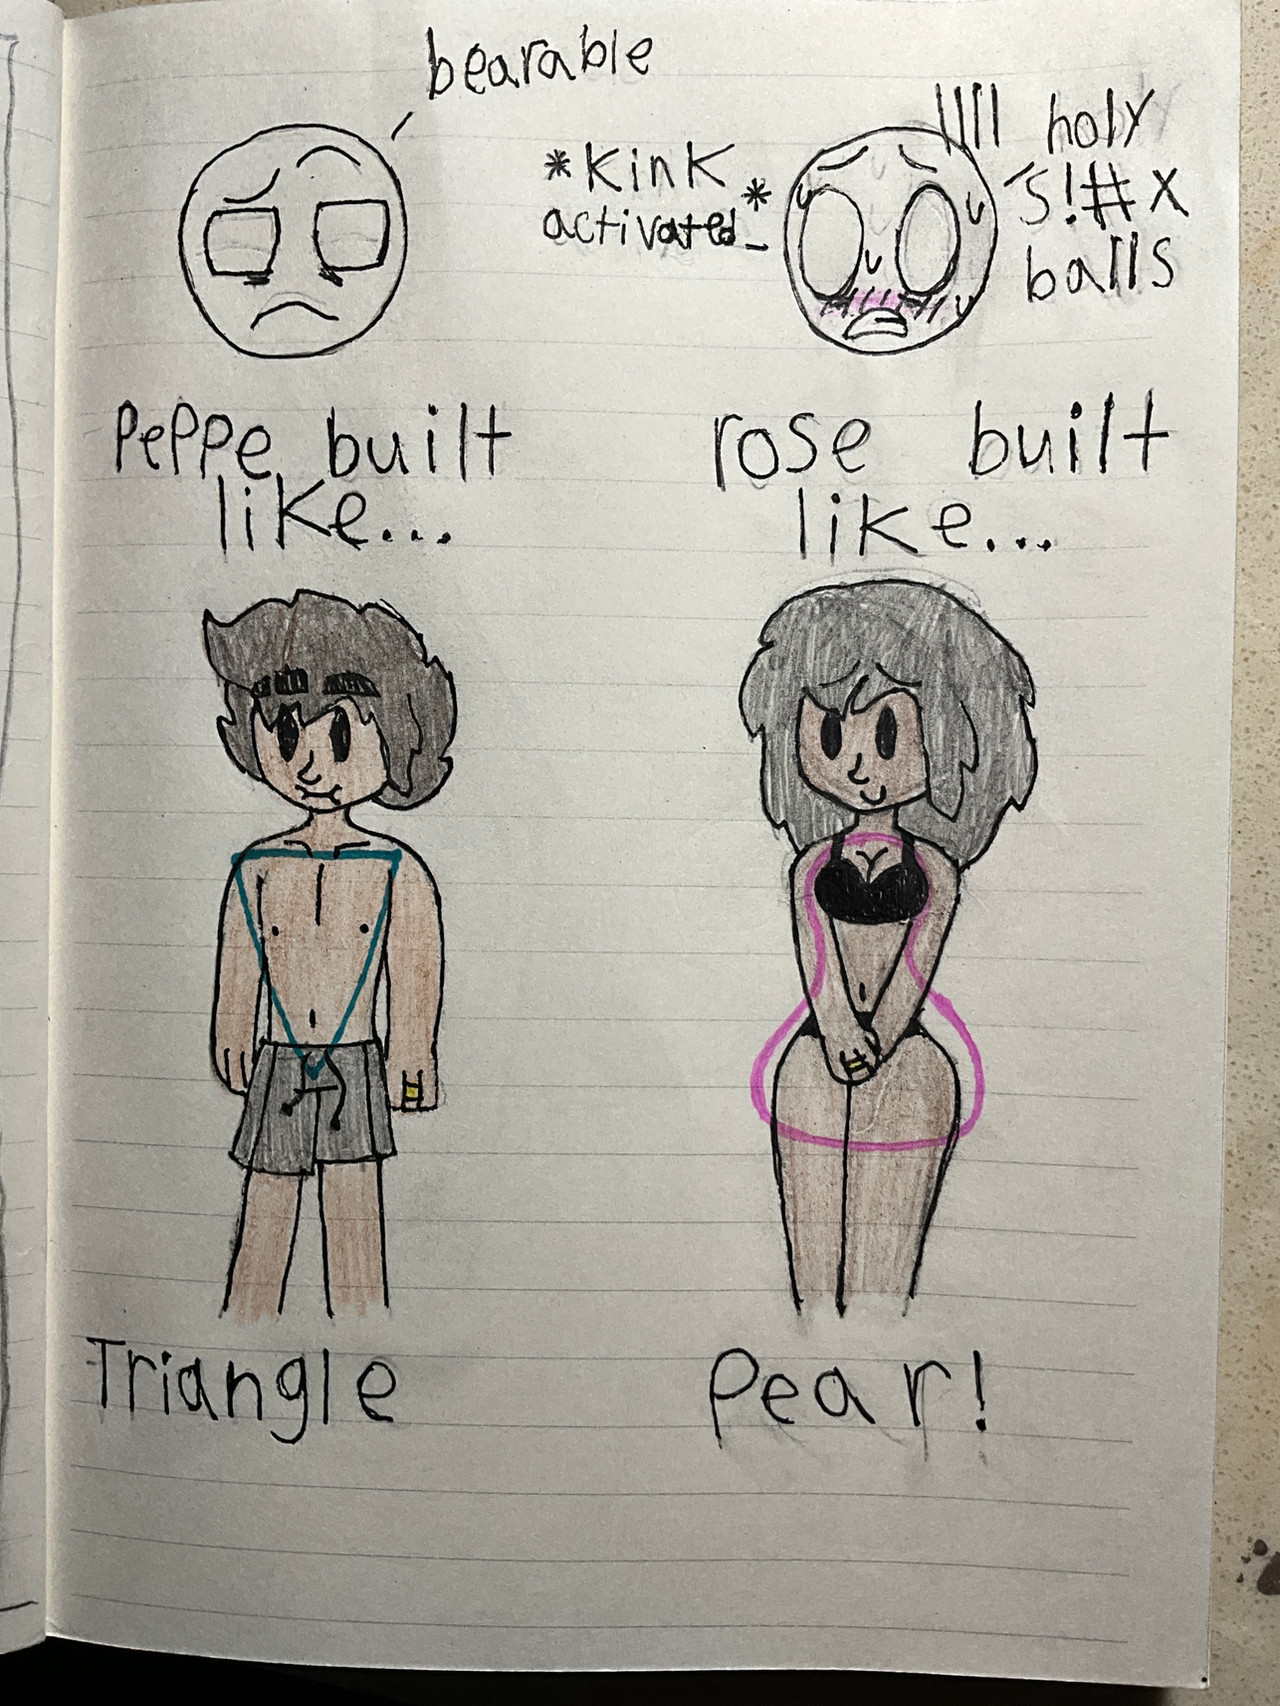 bearable
*Kink
activated_*
holy
s!#x
balls
Peppe built
like...
rose built
like...
Triangle
Pear!